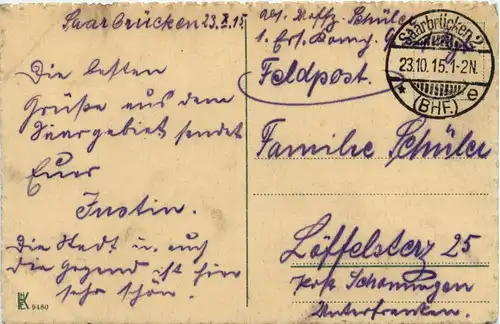 Saarbrücken 23.X.15
Die besten
Grüße aus dem
Saargebiet sendet
Euer
Justin.
Die Stadt u. auch
die Gegend ist hier
sehr schön.
EK 9460
Abs. Uoffz. Schüler
1. Ers. Komp.
Feldpost.
Saarbrücken 2
23.10.15.1-2N.
* (BHF.) e
Familie Schüler
Löffelsterz 25
Post Schonungen
Unterfranken.